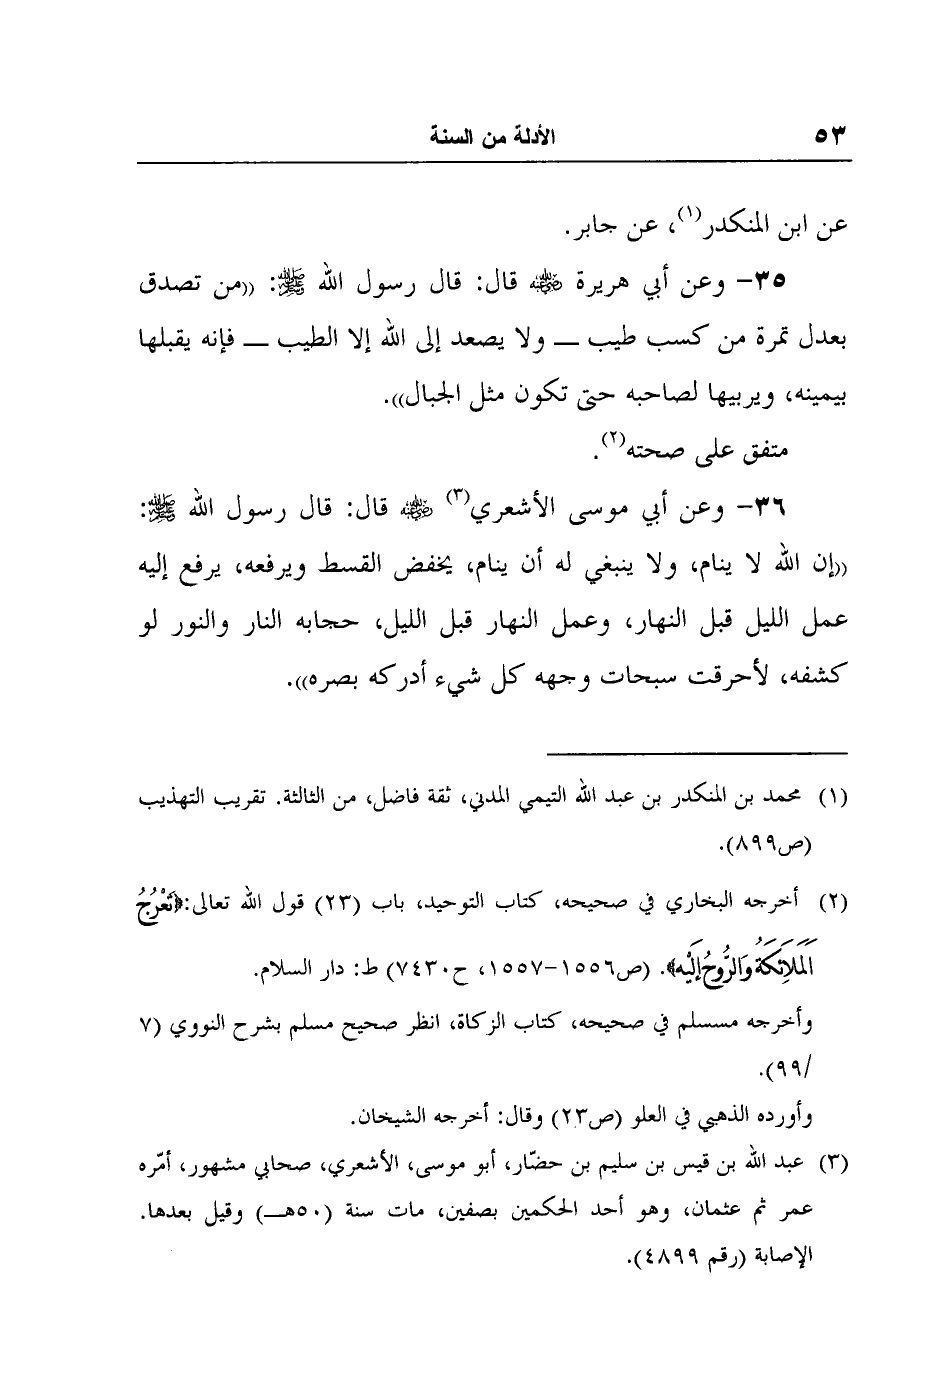 ٥٣ الأدلة من السنة
عن ابن المنكدر(١)، عن جابر.
٣٥- وعن أبي هريرة ﵁ قال: قال رسول الله ﷺ: ((من تصدق
بعدل تمرة من كسب طيب ــ ولا يصعد إلى الله إلا الطيب ــ فإنه يقبلها
بيمينه، ويربيها لصاحبه حتى تكون مثل الجبال)).
متفق على صحته(٢).
٣٦- وعن أبي موسى الأشعري(٣) ﵁ قال: قال رسول الله ﷺ:
((إن الله لا ينام، ولا ينبغي له أن ينام، يخفض القسط ويرفعه، يرفع إليه
عمل الليل قبل النهار، وعمل النهار قبل الليل، حجابه النار والنور لو
كشفه، لأحرقت سبحات وجهه كل شيء أدركه بصره)).
(١) محمد بن المنكدر بن عبد الله التيمي المدني، ثقة فاضل، من الثالثة. تقريب التهذيب
(ص٨٩٩).
(٢) أخرجه البخاري في صحيحه، كتاب التوحيد، باب (٢٣) قول الله تعالى:﴿تَعْرُجُ
الْمَلَائِكَةُ وَالرُّوحُ إِلَيْهِ﴾. (ص١٥٥٦-١٥٥٧، ح٧٤٣٠) ط: دار السلام.
وأخرجه مسسلم في صحيحه، كتاب الزكاة، انظر صحيح مسلم بشرح النووي (٧
/٩٩).
وأورده الذهبي في العلو (ص٢٣) وقال: أخرجه الشيخان.
(٣) عبد الله بن قيس بن سليم بن حضّار، أبو موسى، الأشعري، صحابي مشهور، أمّره
عمر ثم عثمان، وهو أحد الحكمين بصفين، مات سنة (٥٠هــ) وقيل بعدها.
الإصابة (رقم ٤٨٩٩).